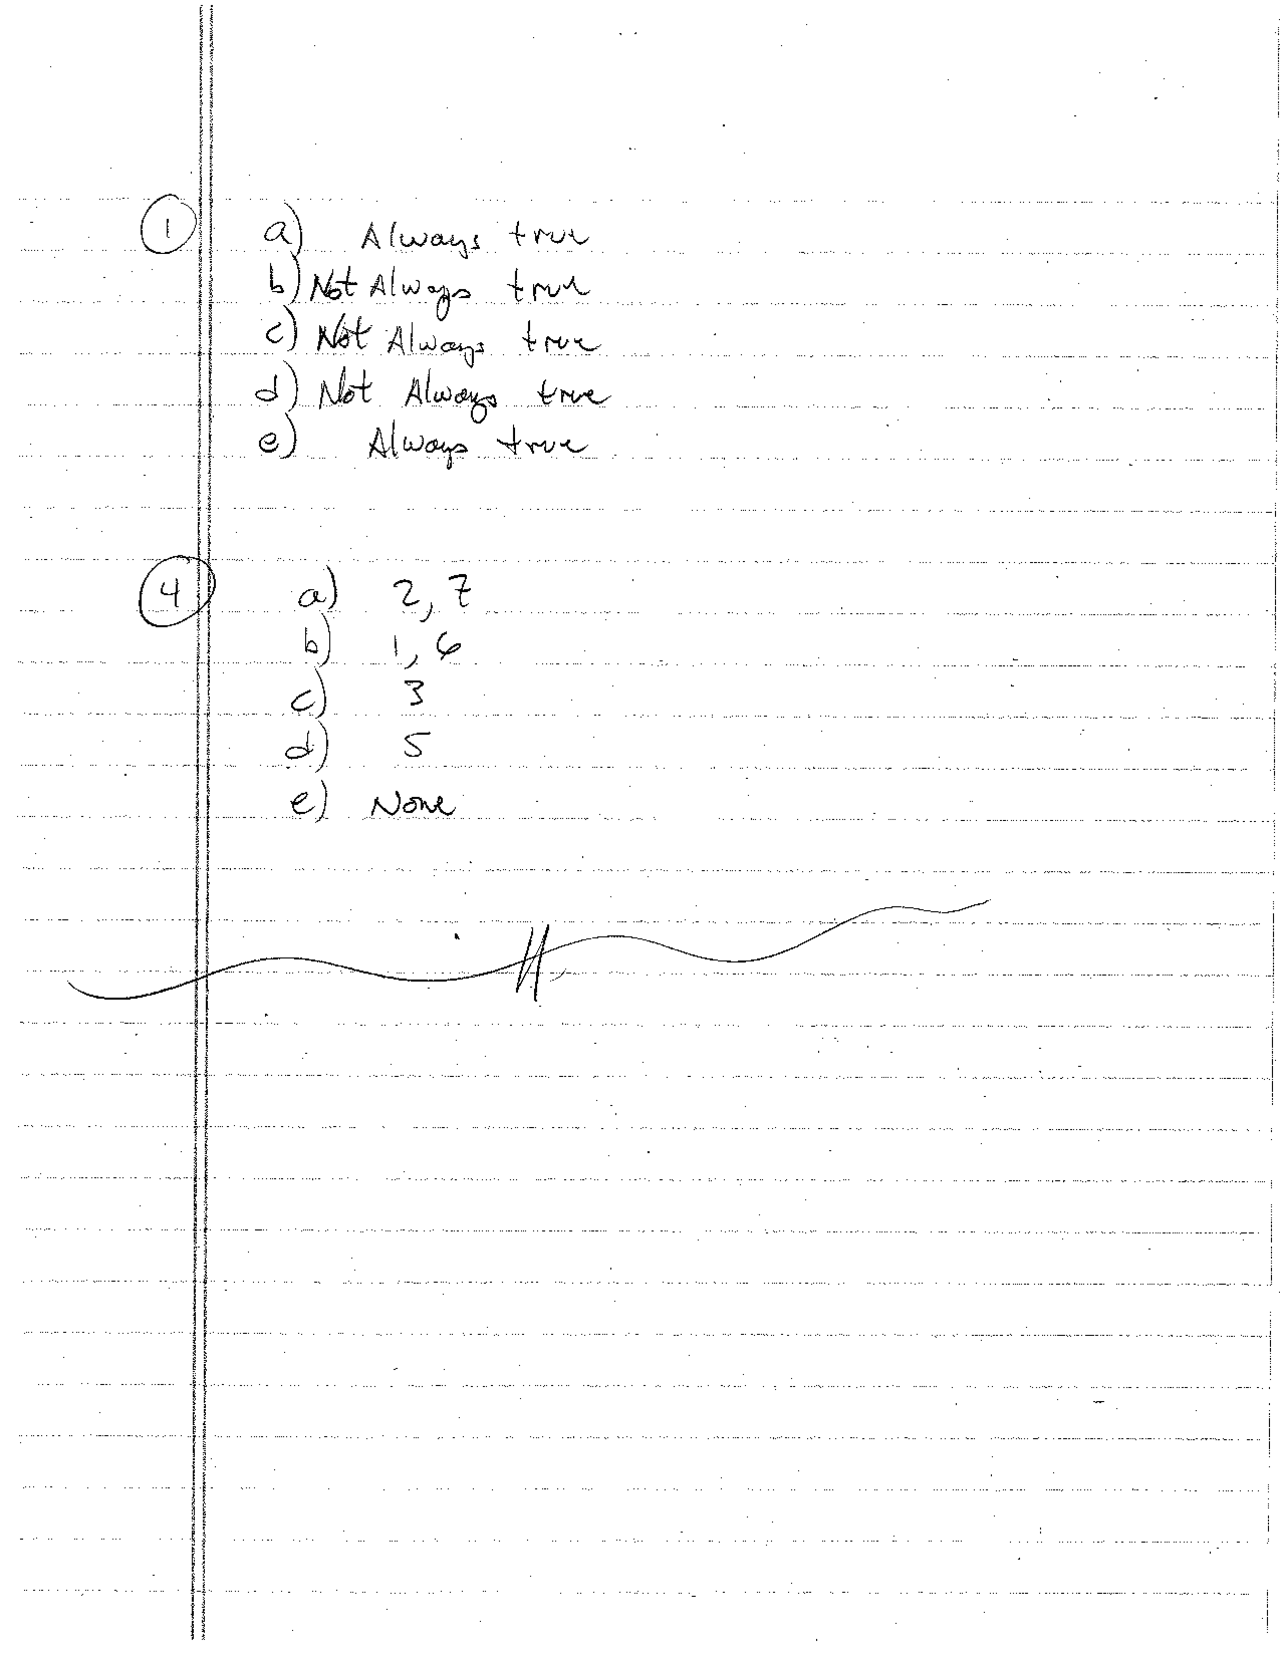 1 a) Always true
b) Not Always true
c) Not Always true
d) Not Always true
e) Always true
4 a) 2, 7
b) 1, 6
c) 3
d) 5
e) None